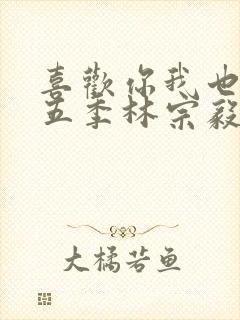 喜歡你我也
五季林宗毅
大橘若鱼